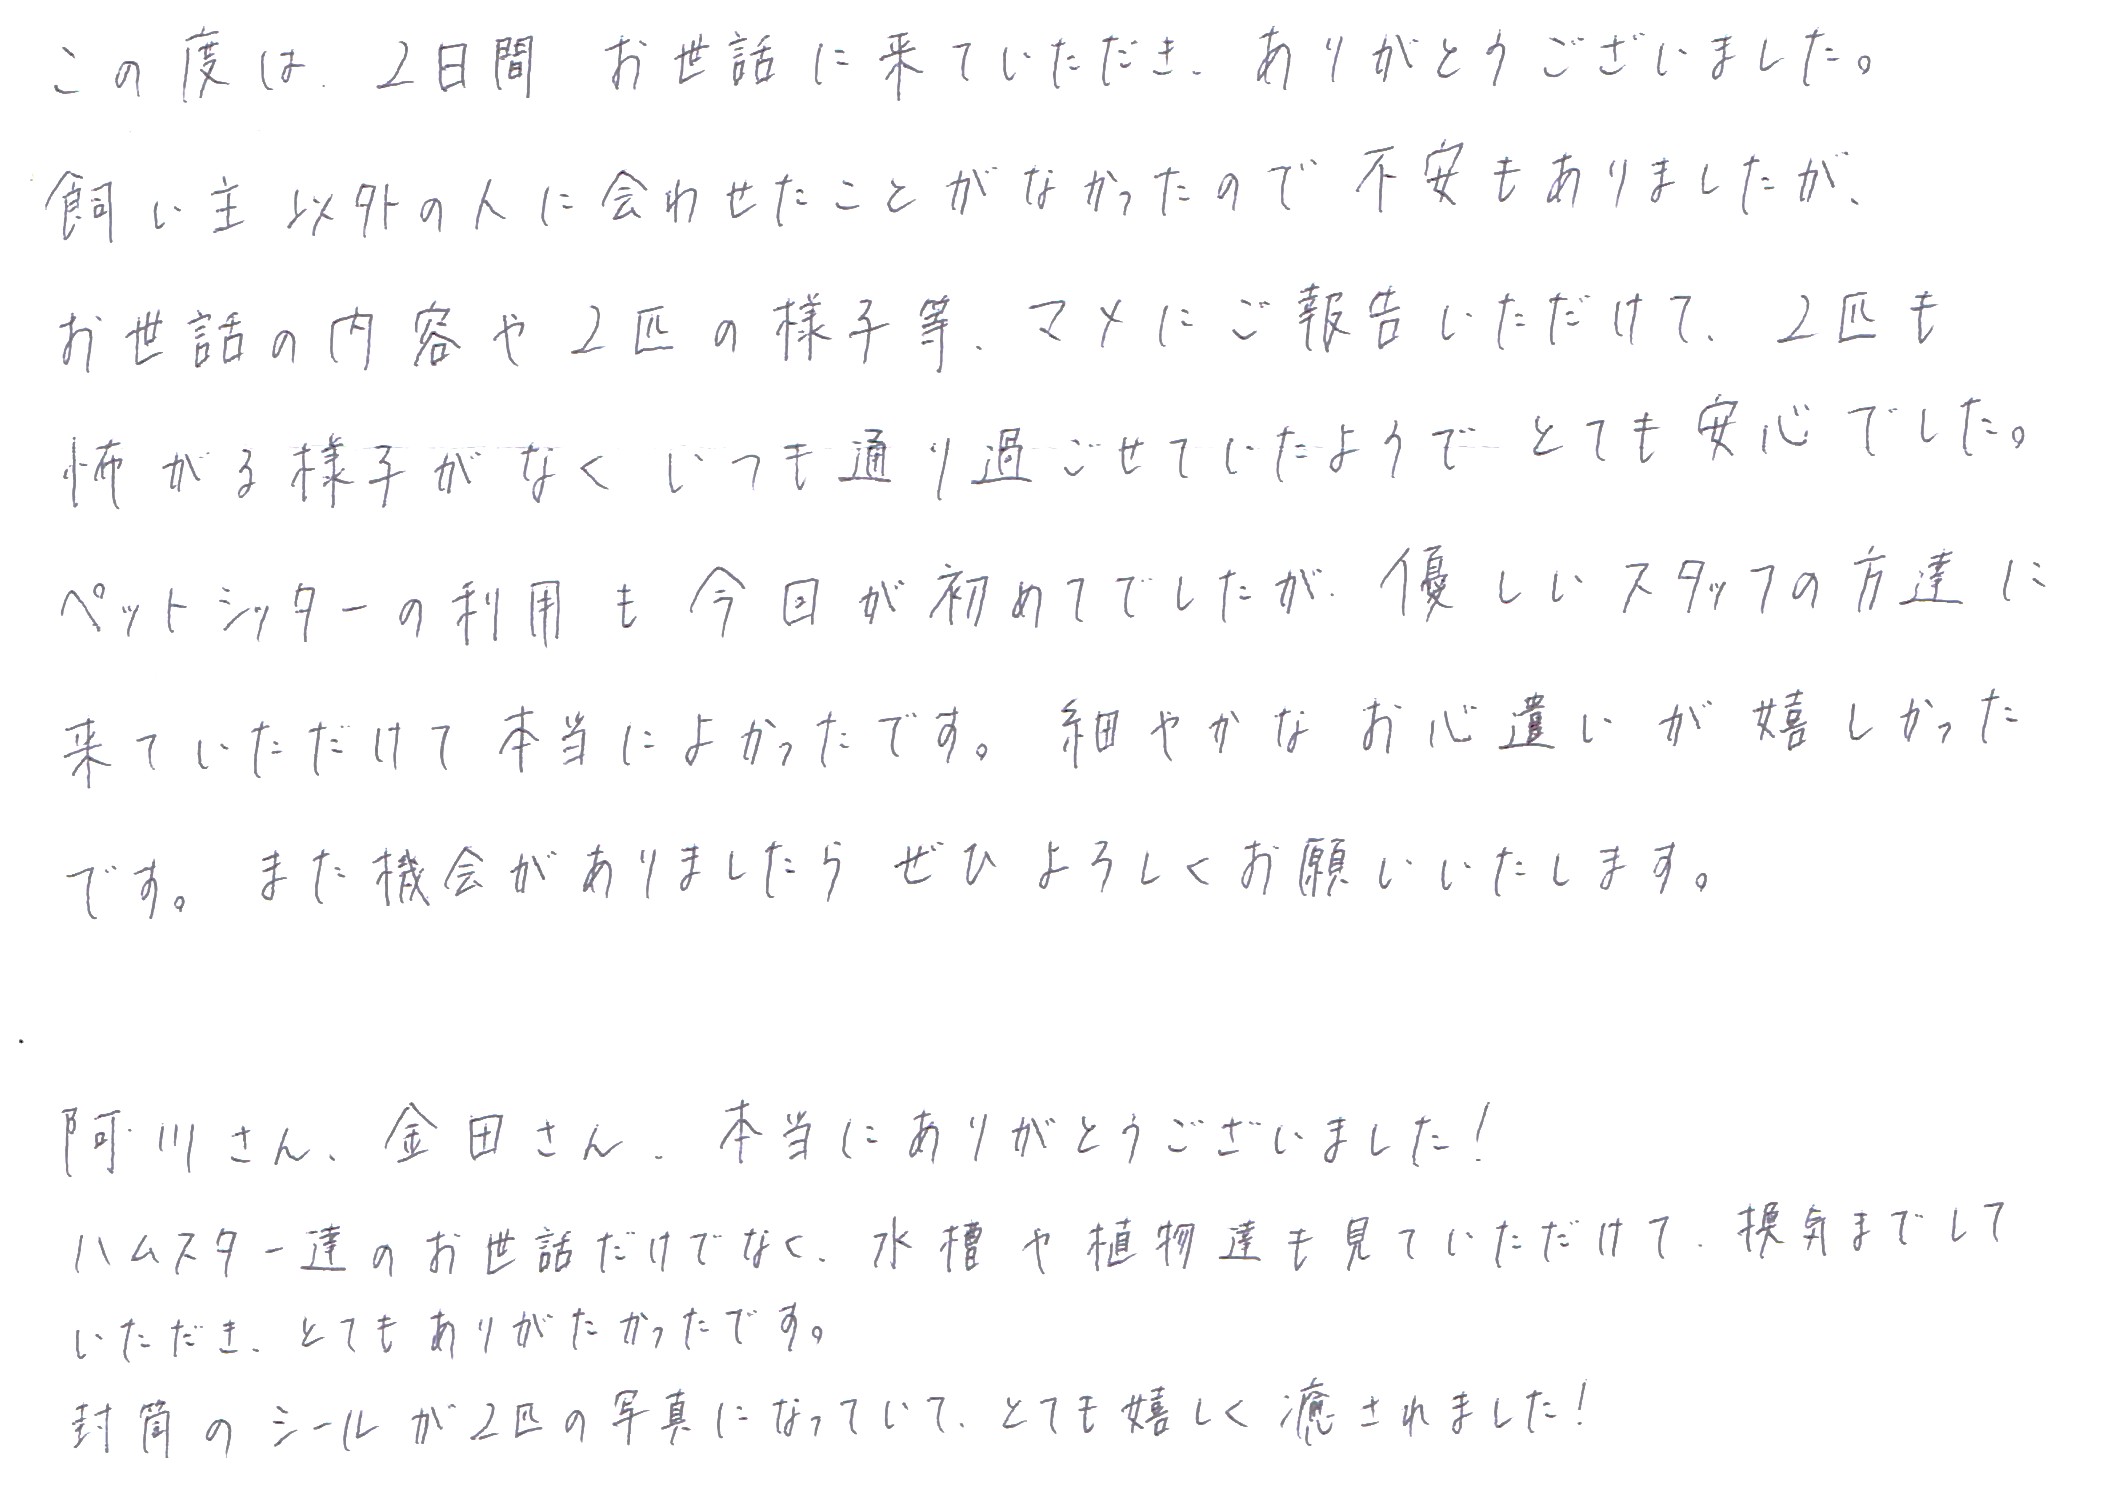 この度は、2日間 お世話に来ていただき、ありがとうございました。
飼い主以外の人に会わせたことがなかったので不安もありましたが、
お世話の内容や2匹の様子等、マメにご報告いただけて、2匹も
怖がる様子がなくいつも通り過ごせていたようでとても安心でした。
ペットシッターの利用も今回が初めてでしたが、優しいスタッフの方達に
来ていただけて本当によかったです。細やかなお心遣いが嬉しかった
です。また機会がありましたらぜひよろしくお願いいたします。
阿川さん、金田さん、本当にありがとうございました!
ハムスター達のお世話だけでなく、水槽や植物達も見ていただけて、換気までして
いただき、とてもありがたかったです。
封筒のシールが2匹の写真になっていて、とても嬉しく癒されました!